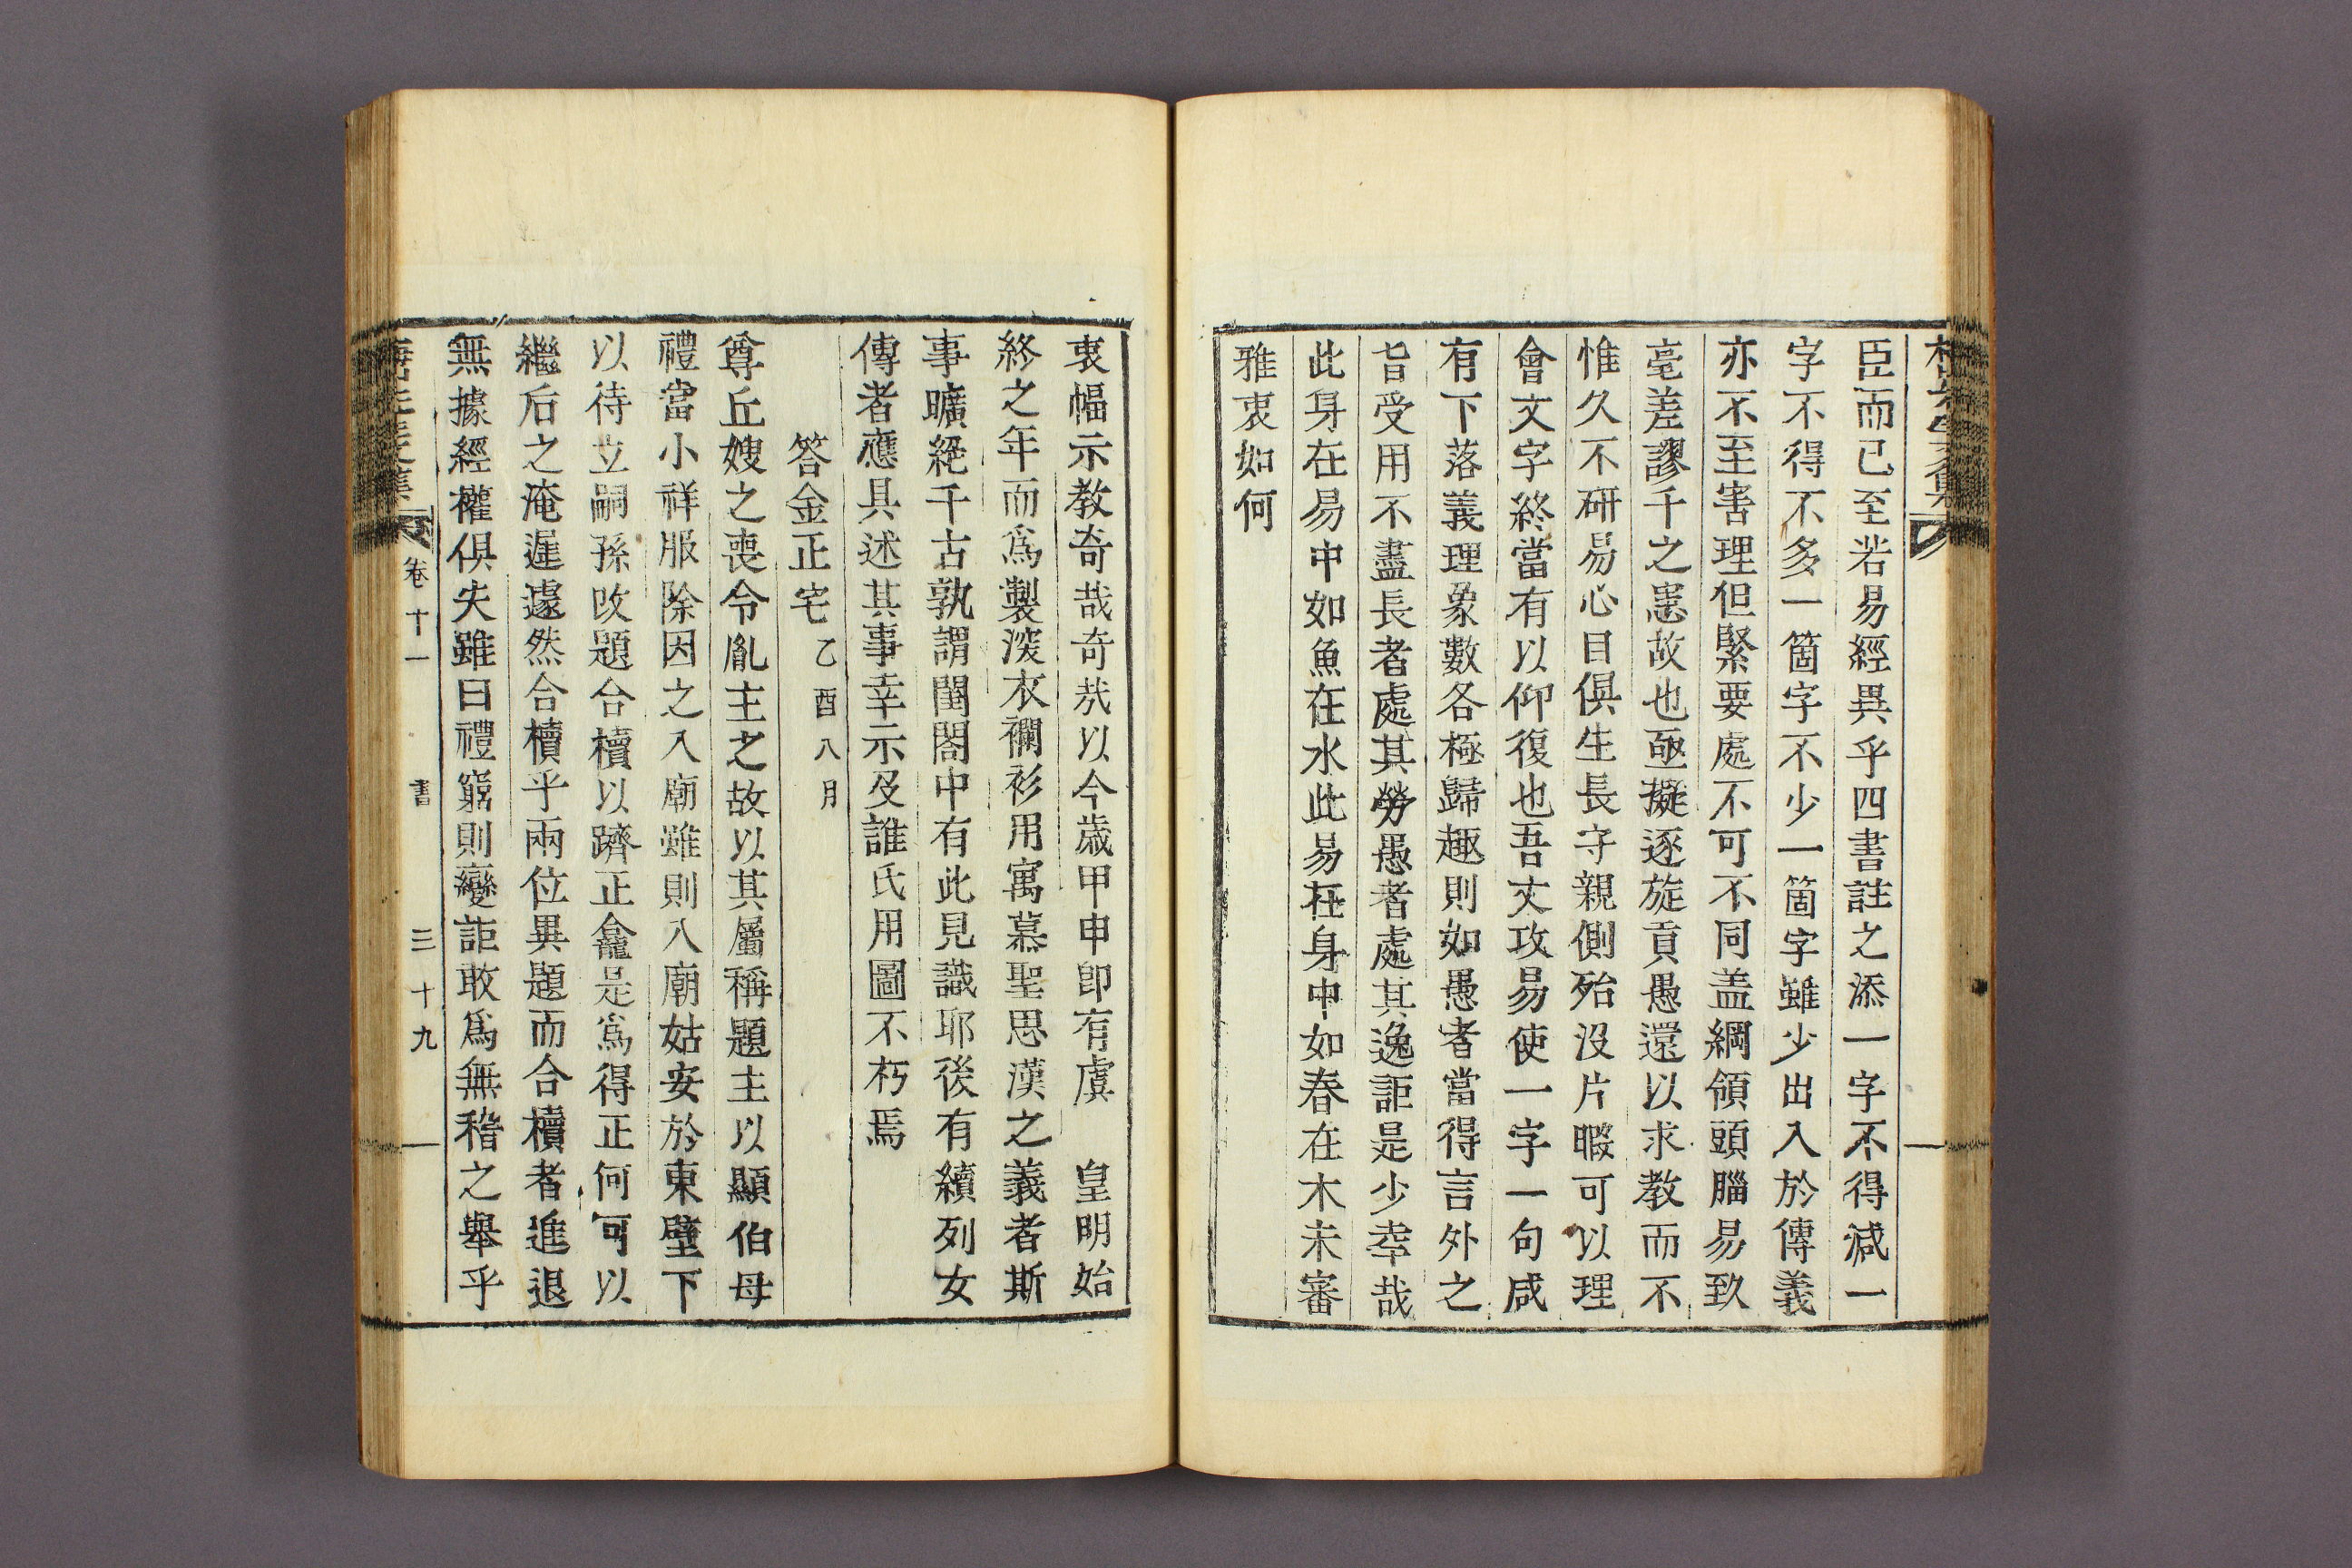 臣而已至若易經異乎四書註之添一字不得減一
字不得不多一箇字不少一箇字雖少出入於傳義
亦不至害理但緊要處不可不同盖綱領頭腦易致
毫差謬千之患故也亟擬逐旋貢愚還以求教而不
惟久不研易心目俱生長守親側殆沒片暇可以理
會文字終當有以仰復也吾丈攻易使一字一句咸
有下落義理象數各極歸趣則如愚者當得言外之
旨受用不盡長者處其勞愚者處其逸詎是少幸哉
此身在易中如魚在水此易在身中如春在木未審
雅衷如何
衷幅示教奇哉奇哉以今歲甲申卽有虞 皇明始
終之年而爲製深衣襴衫用寓慕聖思漢之義者斯
事曠絕千古孰謂閨閤中有此見識耶後有續列女
傳者應具述其事幸示及誰氏用圖不朽焉
答金正宅 乙酉八月
尊丘嫂之喪令胤主之故以其屬稱題主以顯伯母
禮當小祥服除因之入廟雖則入廟姑安於東壁下
以待立嗣孫改題合櫝以躋正龕是爲得正何可以
繼后之淹遲遽然合櫝乎兩位異題而合櫝者進退
無據經權俱失雖曰禮窮則變詎敢爲無稽之舉乎
卷十一 書 三十九